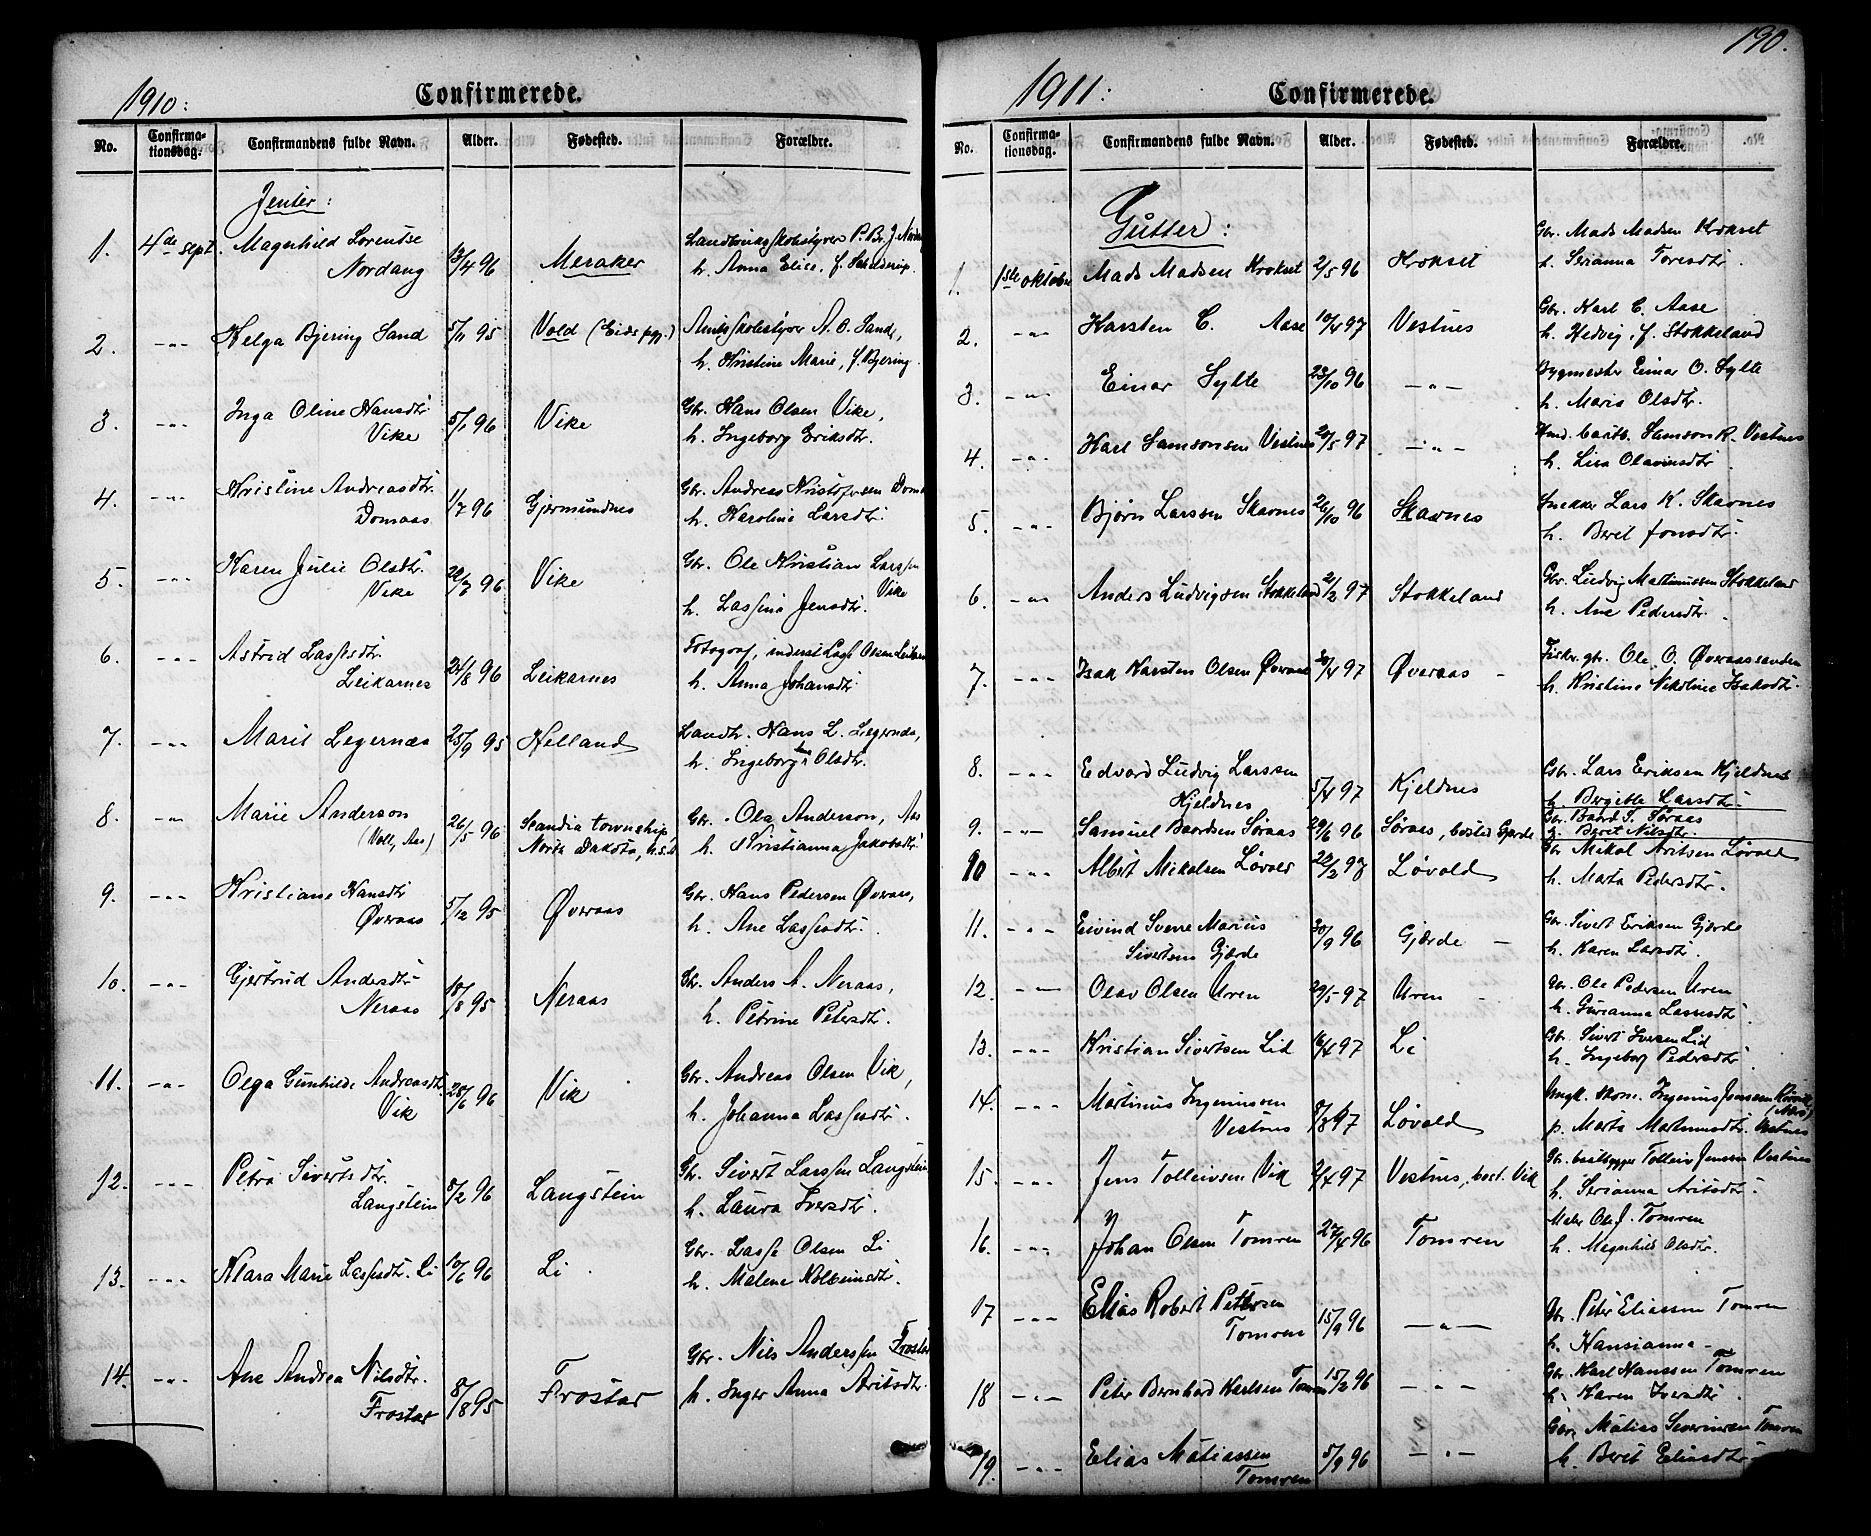 1910:
Confirmerede.
No. Confirma-tionsdag. Confirmandens fulde Navn. Alder. Fødested. Forældre.
Jenter:
1. 4de sept. Magnhild Lorentse 13/4 96 Meraker Landbrugsskolestyrer P. Br. J.
Nordang h. Anna Elise, f.
2. -"- Helga Bjering Sand 5/11 95 Vold (Eids pgj.) Amtsskolestyrer A. O. Sand,
h. Kristine Marie, f. Bjering.
3. -"- Inga Oline Hansdtr. 5/1 96 Vike Gbr. Hans Olsen Vike,
Vike h. Ingeborg Eriksdtr.
4. -"- Kristine Andreasdtr. 1/7 96 Gjermundnes Gbr. Andreas Kristofersen
Domaas h. Karoline Larsdtr.
5. -"- Karen Julie Olsdtr. 96 Vike Gbr. Ole Kristian Larssen
Vike Vike
h. Lassina Jensdtr.
6. -"- Astrid Lassesdtr. 24/8 96 Leikarnes Fotograf, inderst Olsen
Leikarnes h. Anna Johansdtr.
7. -"- Marit Legernæs 25/9 95 Helland Landh. Hans L. Legernæs,
h. Ingeborg Olsdtr.
8. -"- Marie Anderson 26/5 96 Scandia township Gbr. Ola Anderson, Aas
(Voll, Aas) North Dakota, U.S.A h. Kristianna Jakobsdtr.
9. -"- Kristiane Hansdtr 5/12 95 Øveraas Gbr. Hans Pedersen Øveraas,
Øveraas h. Ane Lassesdtr.
10. -"- Gjertrud Andersdtr. 18/8 95 Neraas Gbr. Anders A. Neraas,
Neraas h. Petrine Petersdtr.
11. -"- Olga Gunhilde Andreasdtr. 28/6 96 Vik Gbr. Andreas Olsen Vik,
Vik h. Johanna Lassesdtr.
12. -"- Petra Sivertsdtr. 8/2 96 Langstein Gbr. Sivert Larssen Langstein
Langstein h. Laura Iversdtr.
13. -"- Klara Marie Lassesdtr. Li 10/6 96 Li Gbr. Lasse Olsen Li
h. Malene Kolbeinsdtr.
14. -"- Ane Andrea Nilsdtr. 8/8 95 Frostad Gbr. Nils Anderssen Frostad
Frostad h. Inger Anna Aritsdtr.
190.
1911:
Confirmerede.
No. Confirma-tionsdag. Confirmandens fulde Navn. Alder. Fødested. Forældre.
Gutter:
1. 1ste oktober Mads Madsen Krokset 2/5 96 Krokset Gbr. Mads Madsen Krokset
h. Serianna Toresdtr.
2. -"- Karsten C. Aase 10/4 97 Vestnes Gbr. Karl C. Aase
h. Hedvig, f. Stokkeland
3. -"- Einar Sylte 23/10 96 -"- Bygmester Einar O. Sylte
h. Maris Olsdtr.
4. -"- Karl Samsonsen Vestnes 20/5 97 -"- Samson K. Vestnes
h. Lisa Olavinsdtr.
5. -"- Bjørn Larssen Skarnes 26/10 96 Skarnes Snekker Lars K. Skarnes
h. Beret Jonsdtr.
6. -"- Anders Ludvigsen Stokkeland 2/2 97 Stokkeland Gbr. Ludvig Martinussen Stokkeland
h. Ane Pedersdtr.
7. -"- Isak Karsten Olsen Øveraas 30/4 97 Øveraas Fisker, gbr. Ole O. Øveraassanden
h. Kristine Nikoline Isaksdtr.
8. -"- Edvard Ludvig Larssen 5/4 97 Kjeldnes Gbr. Lars Eriksen Kjeldnes
Kjeldnes h. Bergitte Larsdtr.
9. -"- Samuel Baardsen Søraas 29/6 96 Søraas, bosted Gjerde Gbr. Baard S. Søraas
h. Beret Nilsdtr.
10 -"- Albert Mikalsen Løvold 22/2 97 Løvold Gbr Mikal Aritsen Løvold
h. Marta Pedersdtr.
11. -"- Eivind Sverre Marius 30/9 96 Gjerde Gbr. Sivert Eriksen Gjerde
Sivertsen Gjerde h. Karen Larsdtr.
12. -"- Olav Olsen Uren 29/5 97 Uren Gbr. Ole Pedersen Uren
h. Gurianna Lassesdtr.
13. -"- Kristian Sivertsen Lid 16/4 97 Li Gbr. Sivert Iversen Lid
h. Ingeborg Pedersdtr.
14. -"- Martinus Ingeniussen 8/3 97 Løvold Ungk. skom. Ingenius Jenssen
Vestnes p. Marta Martinusdtr. Vestnes
15. -"- Jens Tolleivsen Vik 2/4 97 Vestnes, bost. Vik Gbr. baatbygger Tolleiv Jenssen Vestnes
h. Serianna Aritsdtr.
16. -"- Johan Olsen Tomren 27/4 96 Tomren Maler Ole J. Tomren
h. Magnhild Olsdtr.
17 -"- Elias Robert Pettersen 15/9 96 -"- Gbr. Peter Eliassen Tomren
Tomren h. Hansianna
18 -"- Peter Bernhard Karlsen Tomren 15/2 96 -"- Gbr. Karl Hanssen Tomren
h. Karen Iversdtr.
19. -"- Elias Matiassen 5/9 96 -"- Gbr. Matias Severinsen Tomren
Tomren h. Berit Eliasdtr.